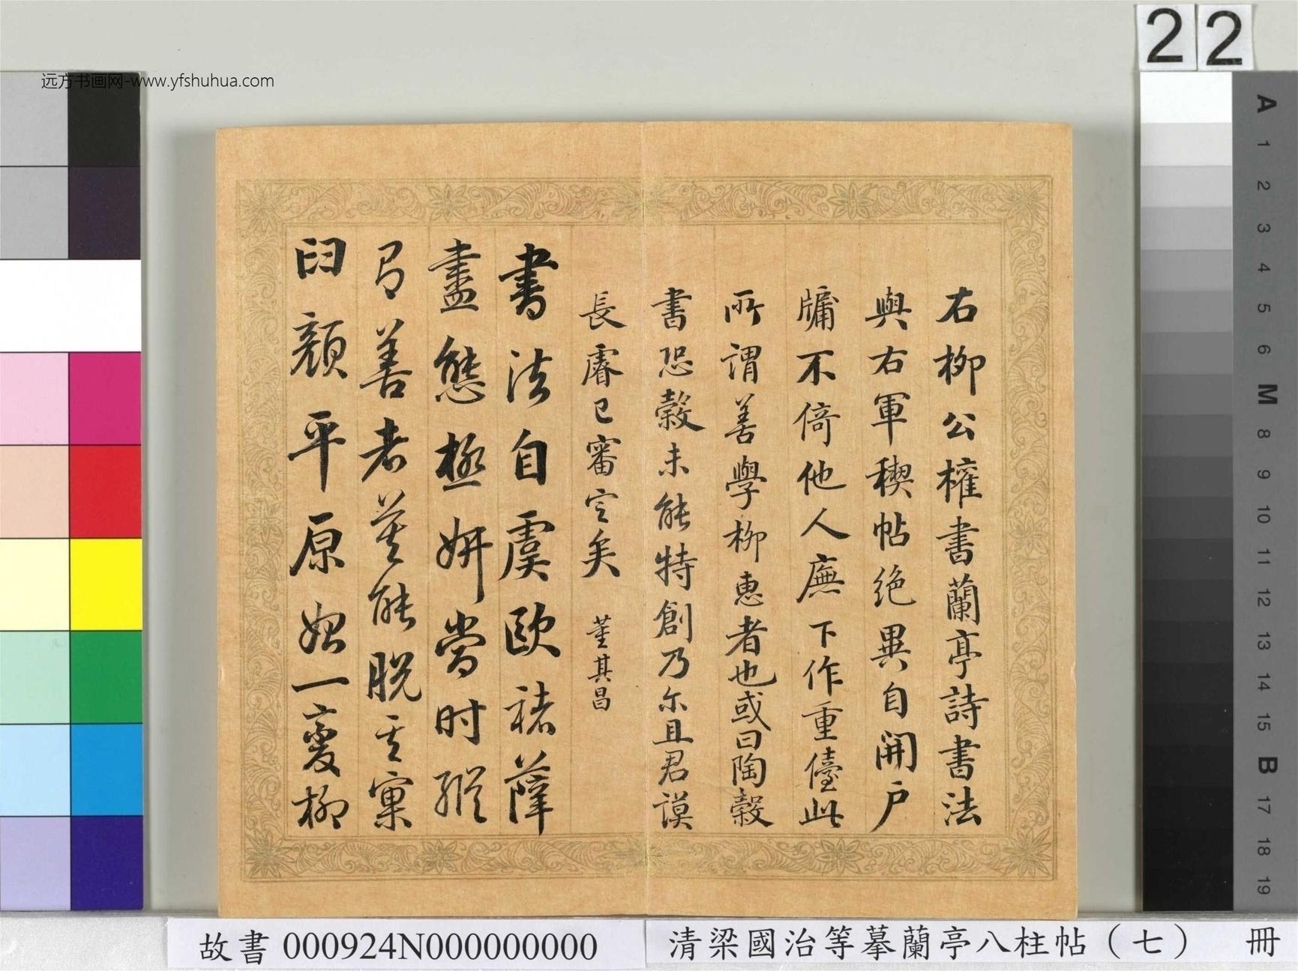 远方书画网-www.yfshuhua.com
22
右柳公權書蘭亭詩書法
與右軍稧帖绝異自開戶
牖不倚他人廡下作重儓此
所謂善學柳惠者也或曰陶穀
書恐穀未能特創乃尔且君謨
長睿已審定矣 董其昌
書法自虞歐褚薛
盡態極妍當时縱
有善者莫能脱其窠
臼顏平原始一變柳
A 1 2 3 4 5 6 M 8 9 10 11 12 13 14 15 B 17 18 19
故書 000924N000000000
清梁國治等摹蘭亭八柱帖（七） 冊